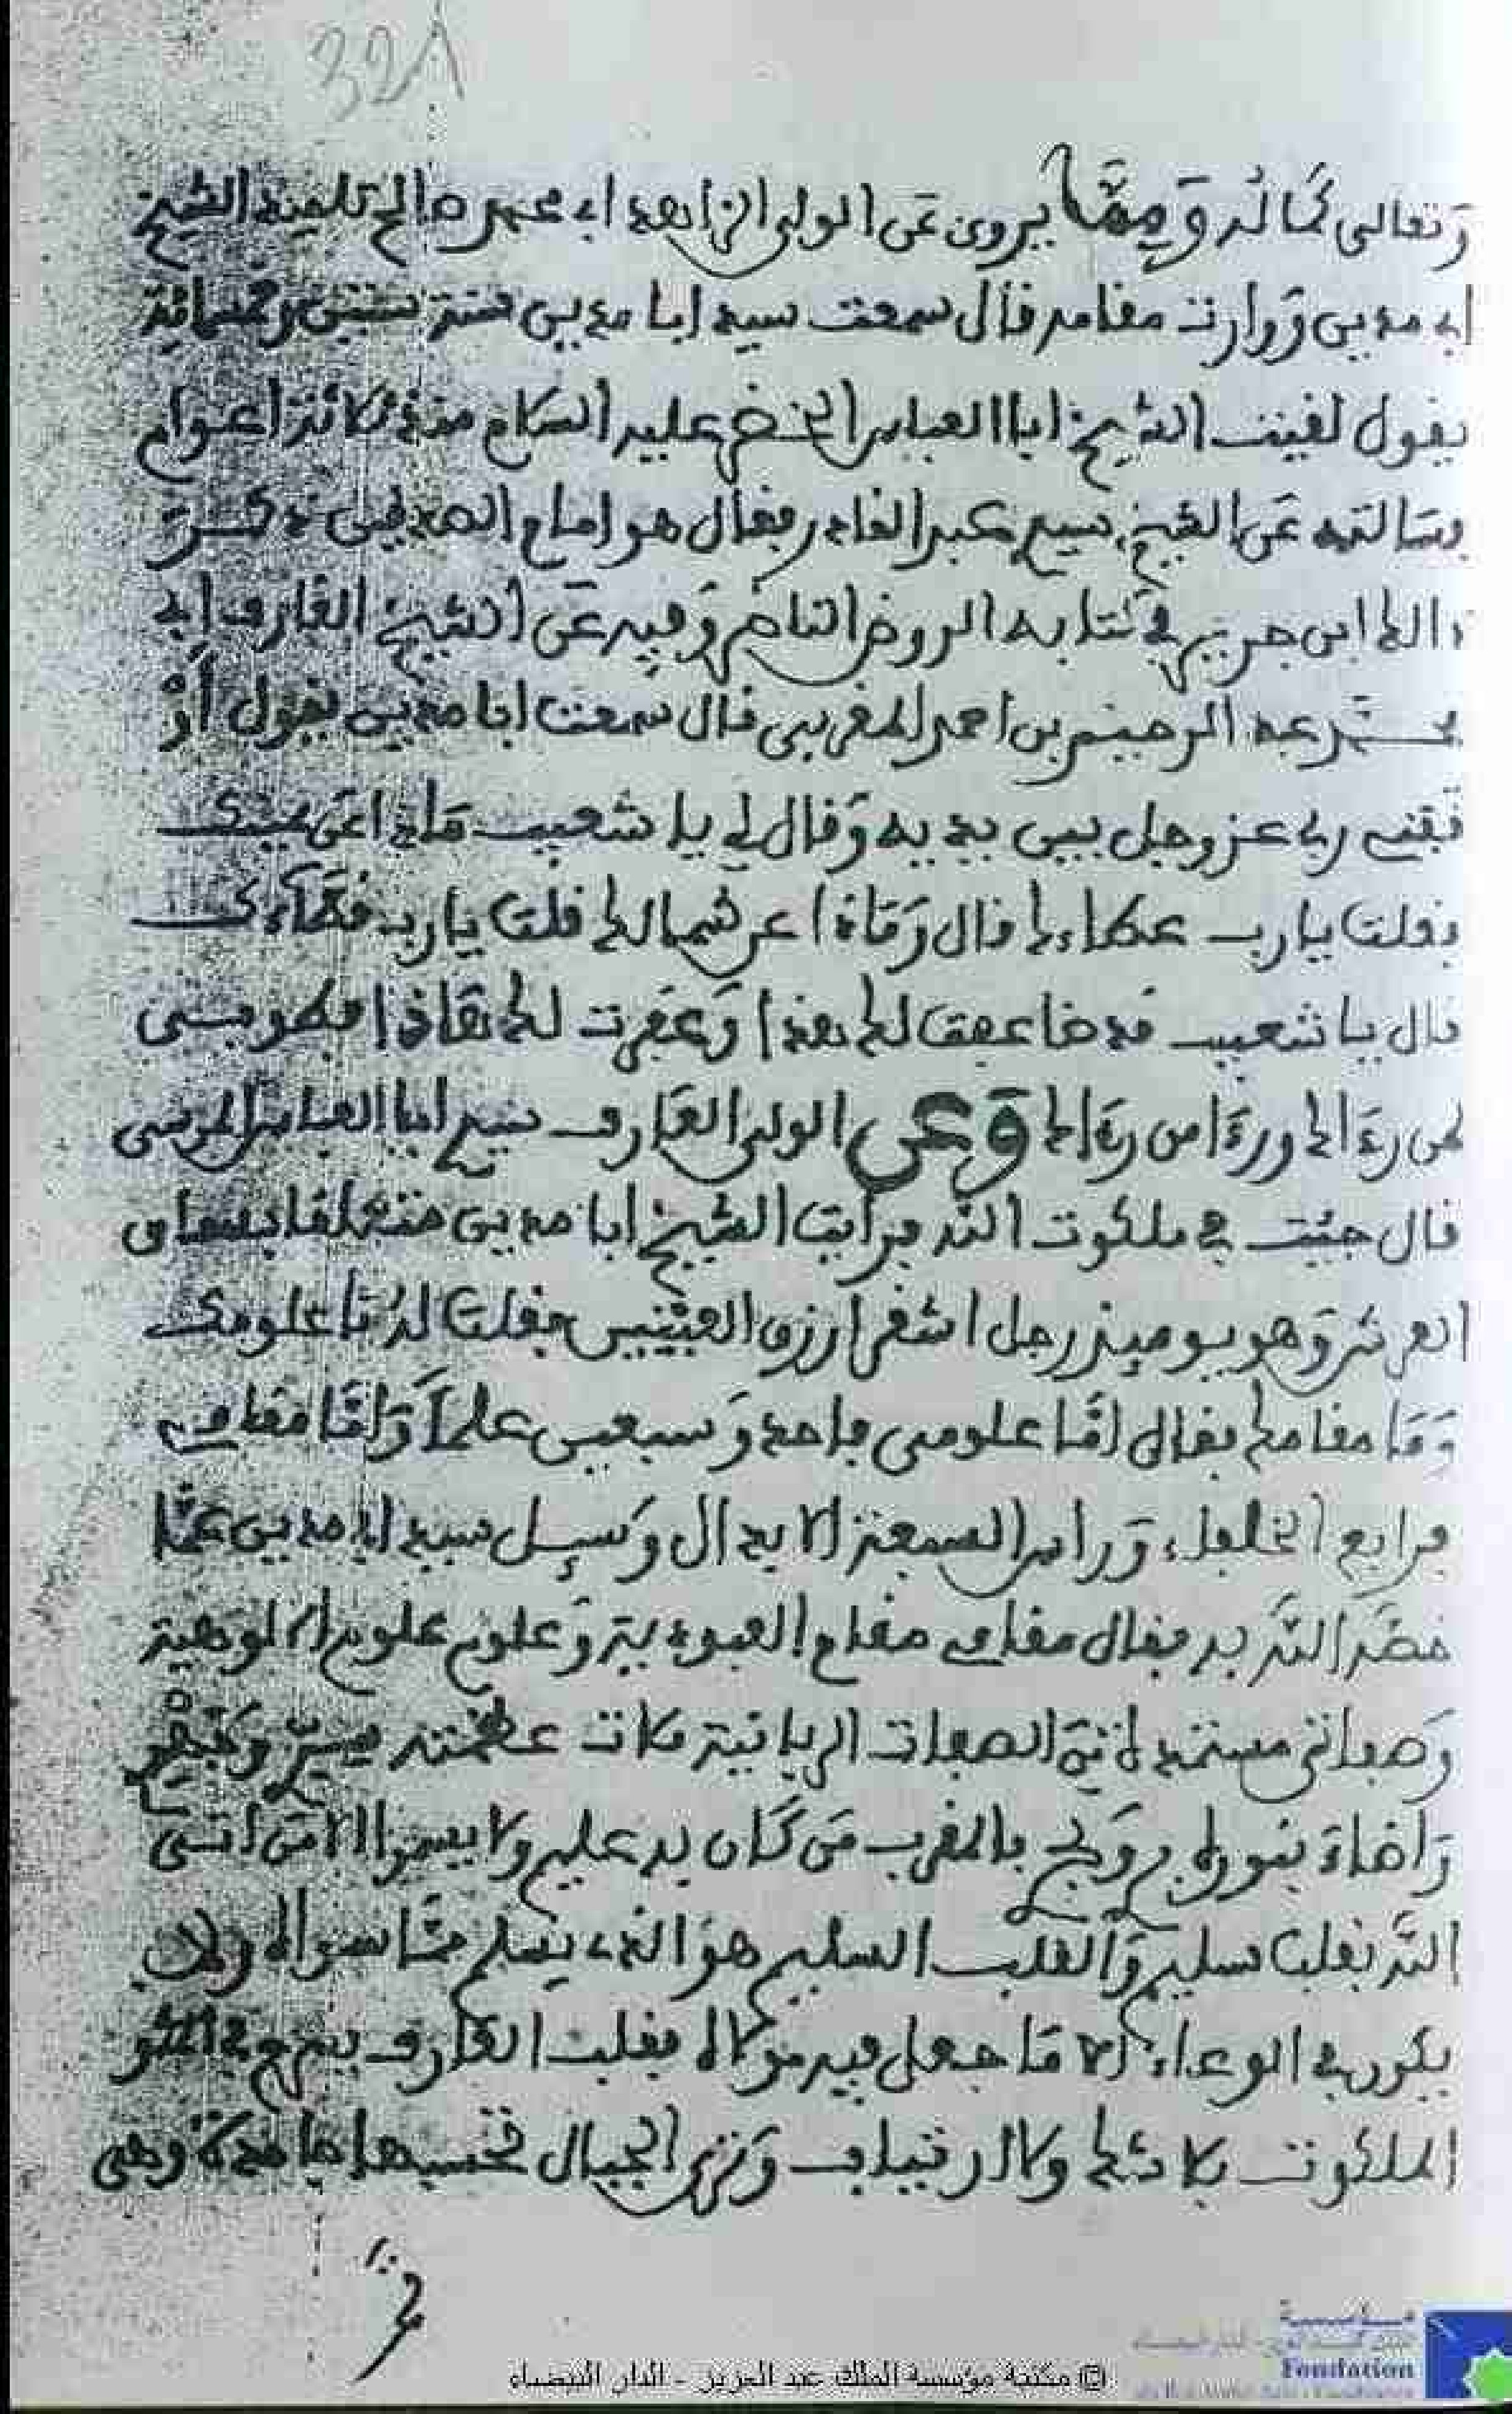 321
وتعالى كماله ومما يروى عن الولي الزاهد ابي محمد صالح تلميذ الشيخ
ابي مدين ووارث مقامه قال سمعت سيدي ابا مدين سنة ستين وخمسمائة
يقول لقيت الشيخ ابا العباس الخضر عليه السلام منذ ثلاثة اعوام
فسالته عن الشيخ سيدي عبد القادر فقال هو امام الصديقين ذكر
ذالك ابن في كتابه الروض الناضر وفيه عن الشيخ العارف ابي
محمد عبد الرحيم بن احمد المغربي قال سمعت ابا مدين يقول أوْ
قفني ربي عز وجل بين يديه وقال لي يا شعيب ماذا عن يمينك
فقلت يا رب عطاءك قال وماذا عن شمالك قلت يا رب قضاءك
قال يا شعيب قد ضاعفت لك هذا وغفرت لك هذا فطوبى
لمن رءاك ورءا من رءاك وعن الولي العارف سيدي ابا العباس المرسي
قال جئت في ملكوت الله فرايت الشيخ ابا مدين متعلقا بساق
العرش وهو يوميذ رجل اشقر ازرق العينين فقلت له ما علومك
وما مقامك فقال اما علومي فاحد وسبعين علما واما مقامي
فرابع الخلفاء وراس السبعة الابدال وسيل سيدي ابا مدين عما
خصه الله به فقال مقامي مقام العبودية وعلومي علوم الالوهية
وصفاتي مستمدة من الصفات الربانية ملات عظمته سري وجهري
واضاء بنوره بري وبحري فالمقرب من كان به عليم ولا يسمو الا من اتى
الله بقلب سليم والقلب السليم هو الذي يسلم مما سواه ولا
يكون في الوعاء الا ما جعل فيه مولاه فقلب العارف يسرح في
الملكوت بلا شك ولا ارتياب وترى الجبال تحسبها جامدة وهي
تمر
مؤسسة
Fondation
© مكتبة مؤسسة الملك عبد العزيز - الدار البيضاء